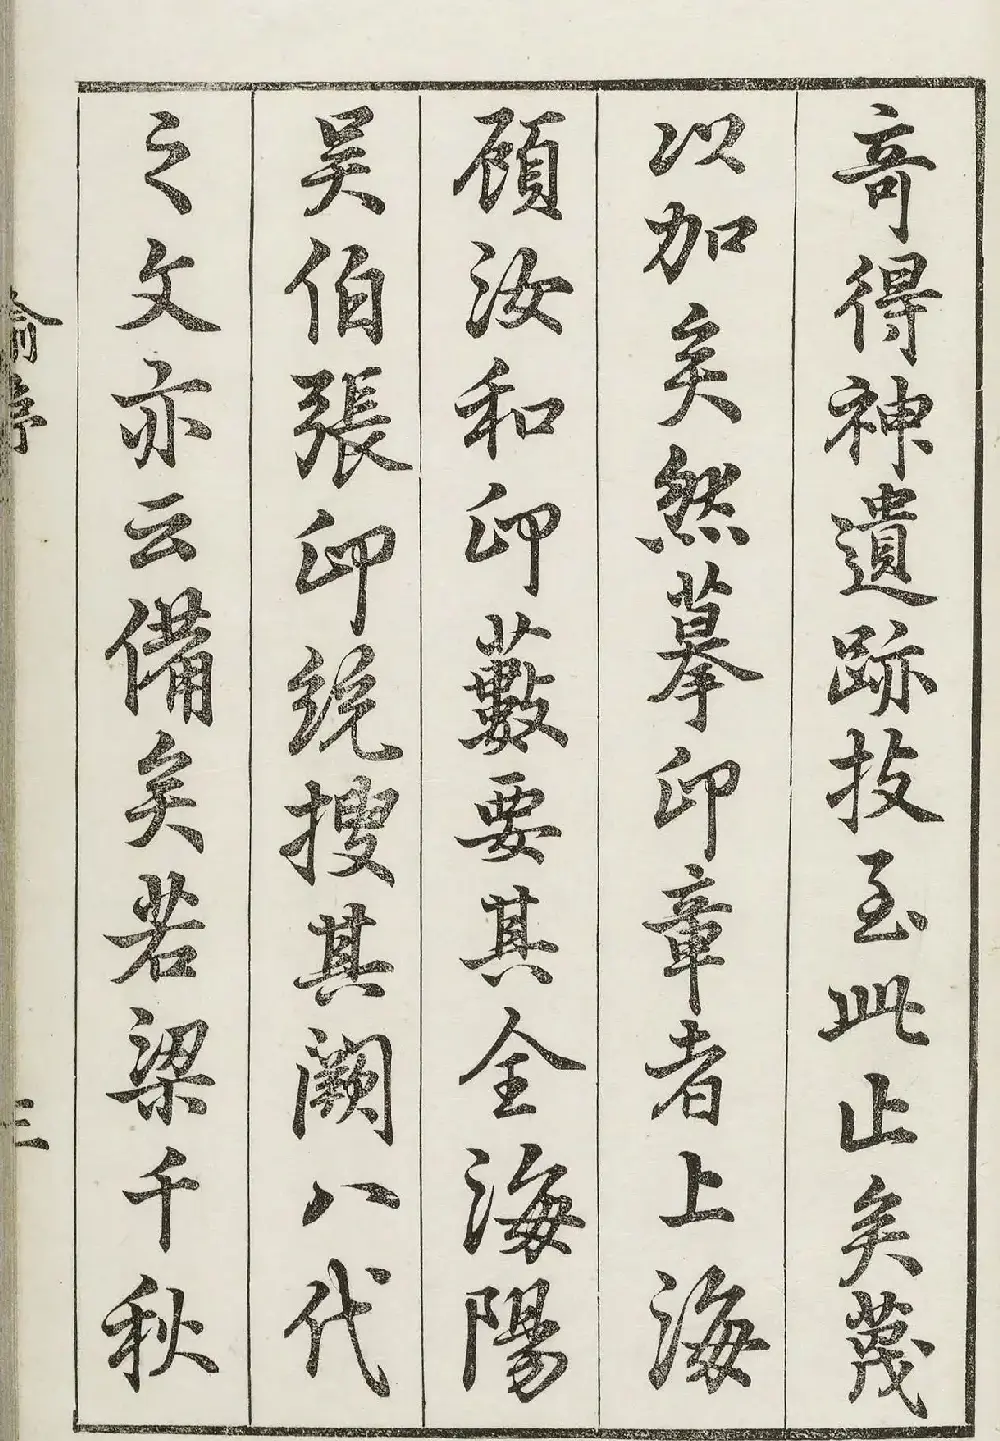 奇得神遺跡技至此止矣蔑
以加矣然摹印章者上海
顧汝和印藪要其全海陽
吳伯張印統搜其闕八代
之文亦云備矣若梁千秋
俞序
三